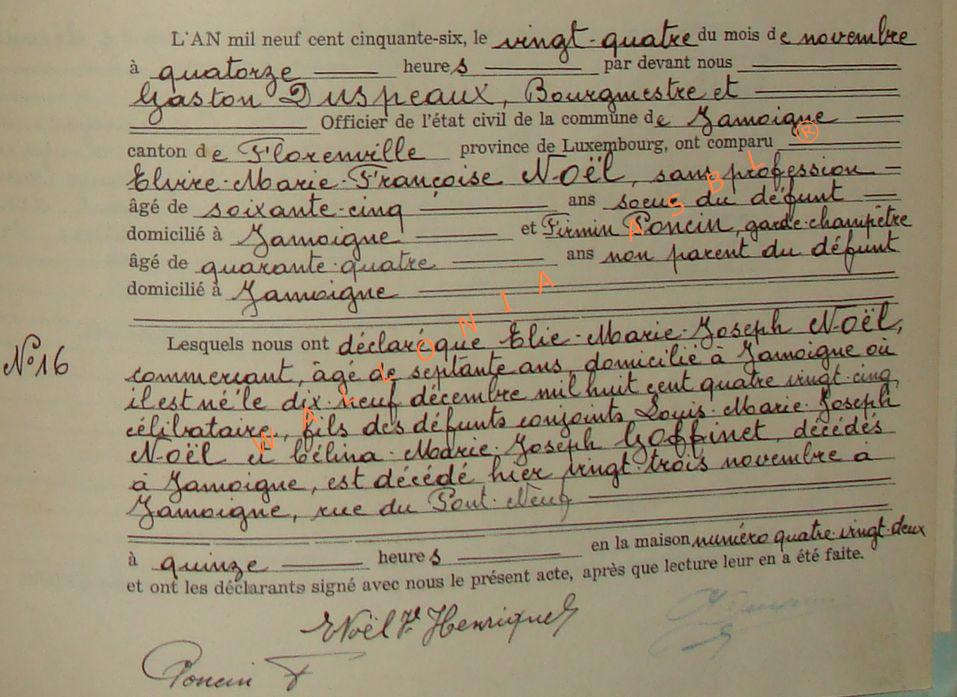 L'AN mil neuf cent cinquante-six, le vingt-quatre du mois de novembre
à quatorze heures par devant nous
Gaston Duspeaux, Bourgmestre et
Officier de l'état civil de la commune de Jamoigne
canton de Florenville province de Luxembourg, ont comparu
Elvire-Marie-Françoise Noël, sans profession
âgé de soixante-cinq ans soeur du défunt
domicilié à Jamoigne et Firmin Poncin, garde-champêtre
âgé de quarante-quatre ans non parent du défunt
domicilié à Jamoigne
Lesquels nous ont déclaré que Elie-Marie-Joseph Noël,
N° 16
commerçant, âgé de septante ans, domicilié à Jamoigne où
il est né le dix-neuf décembre mil huit cent quatre vingt-cinq,
célibataire, fils des défunts conjoints Louis-Marie-Joseph
Noël et Célina-Marie-Joseph Goffinet, décédés
à Jamoigne, est décédé hier vingt-trois novembre à
Jamoigne, rue du Pont-Neuf
à quinze heures en la maison numéro quatre-vingt-deux
et ont les déclarants signé avec nous le présent acte, après que lecture leur en a été faite.
Noël Vve Henriquet
Poncin F
WALLONIA ASBL ®